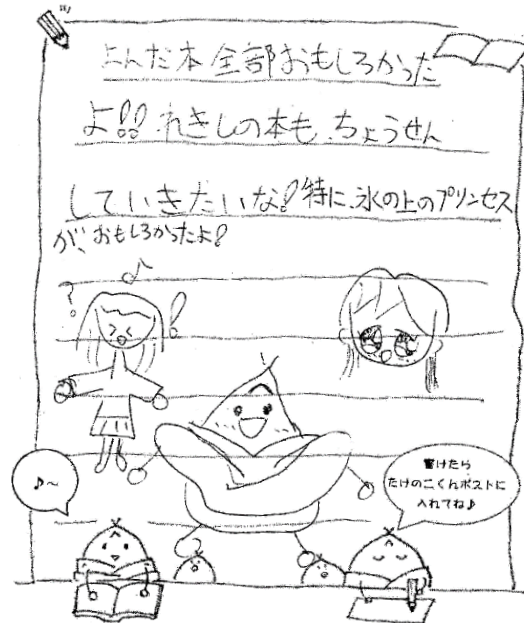 よんだ本全部おもしろかった
よ!! れきしの本も、ちょうせん
していきたいな! 特に、氷の上のプリンセス
が、おもしろかったよ!
♪
? !
♪~
書けたら
たけのこくんポストに
入れてね♪